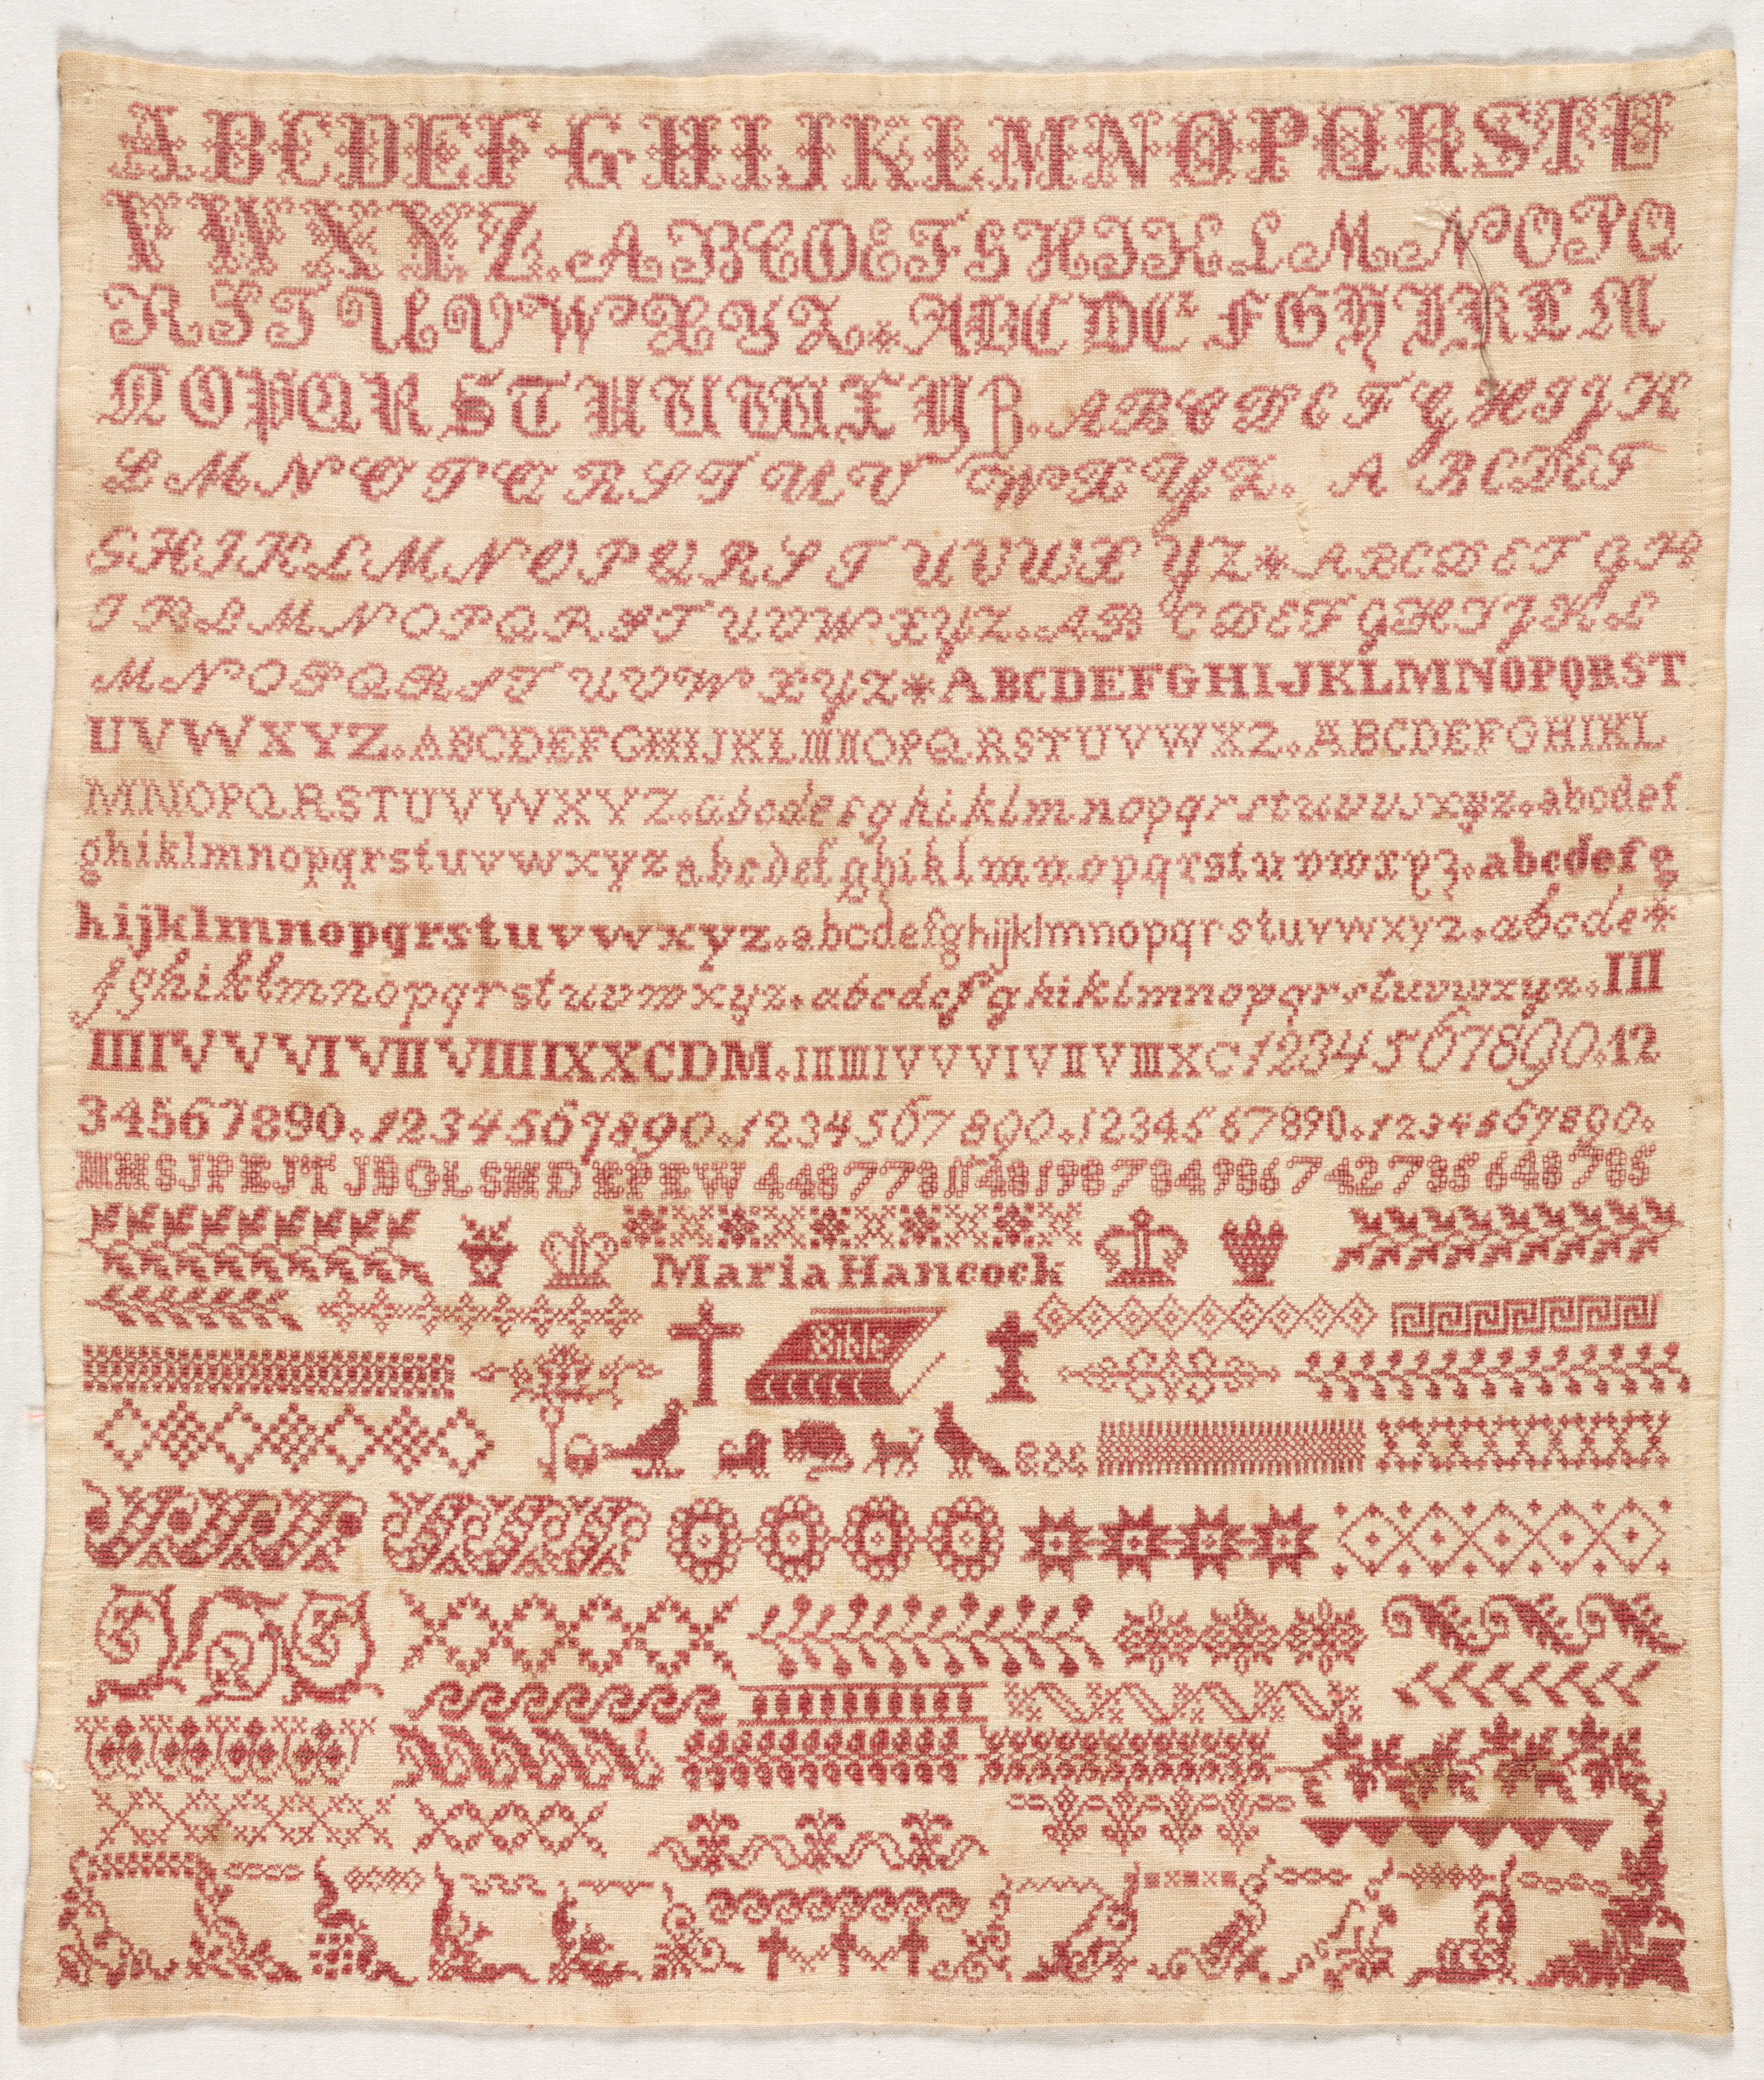 ABCDEFGHIJKLMNOPQRSTU
VWXYZ.ABCDEFGHIKLMNOPQ
RSTUVWXYZ*ABCDEFGHIKLM
NOPQRSTUVWXYZ.ABCDEFGHIJK
LMNOPQRSTUVWXYZ.ABCDEF
GHIKLMNOPQRSTUVWXYZ*ABCDEFGH
IKLMNOPQRSTUVWXYZ.ABCDEFGHIJKL
MNOPQRSTUVWXYZ*ABCDEFGHIJKLMNOPQRST
UVWXYZ.ABCDEFGHIJKLMNOPQRSTUVWXZ.ABCDEFGHIKL
MNOPQRSTUVWXYZ.abcdefghiklmnopqrstuvwxyz.abcdef
ghiklmnopqrstuvwxyzabcdefghiklmnopqrstuvwxyz.abcdefg
hijklmnopqrstuvwxyz.abcdefghijklmnopqrstuvwxyz.abcde*
fghiklmnopqrstuvwxyz.abcdefghiklmnopqrstuvwxyz.III
IIIIVVVIVIIVIIIIXXCDM.IIIIIIIVVVIVIIVIIIXC1234567890.12
34567890.1234567890.1234567890.1234567890.1234567890.
MHSJPEJTJBGLSMDEPEW
Maria Hancock
Bible